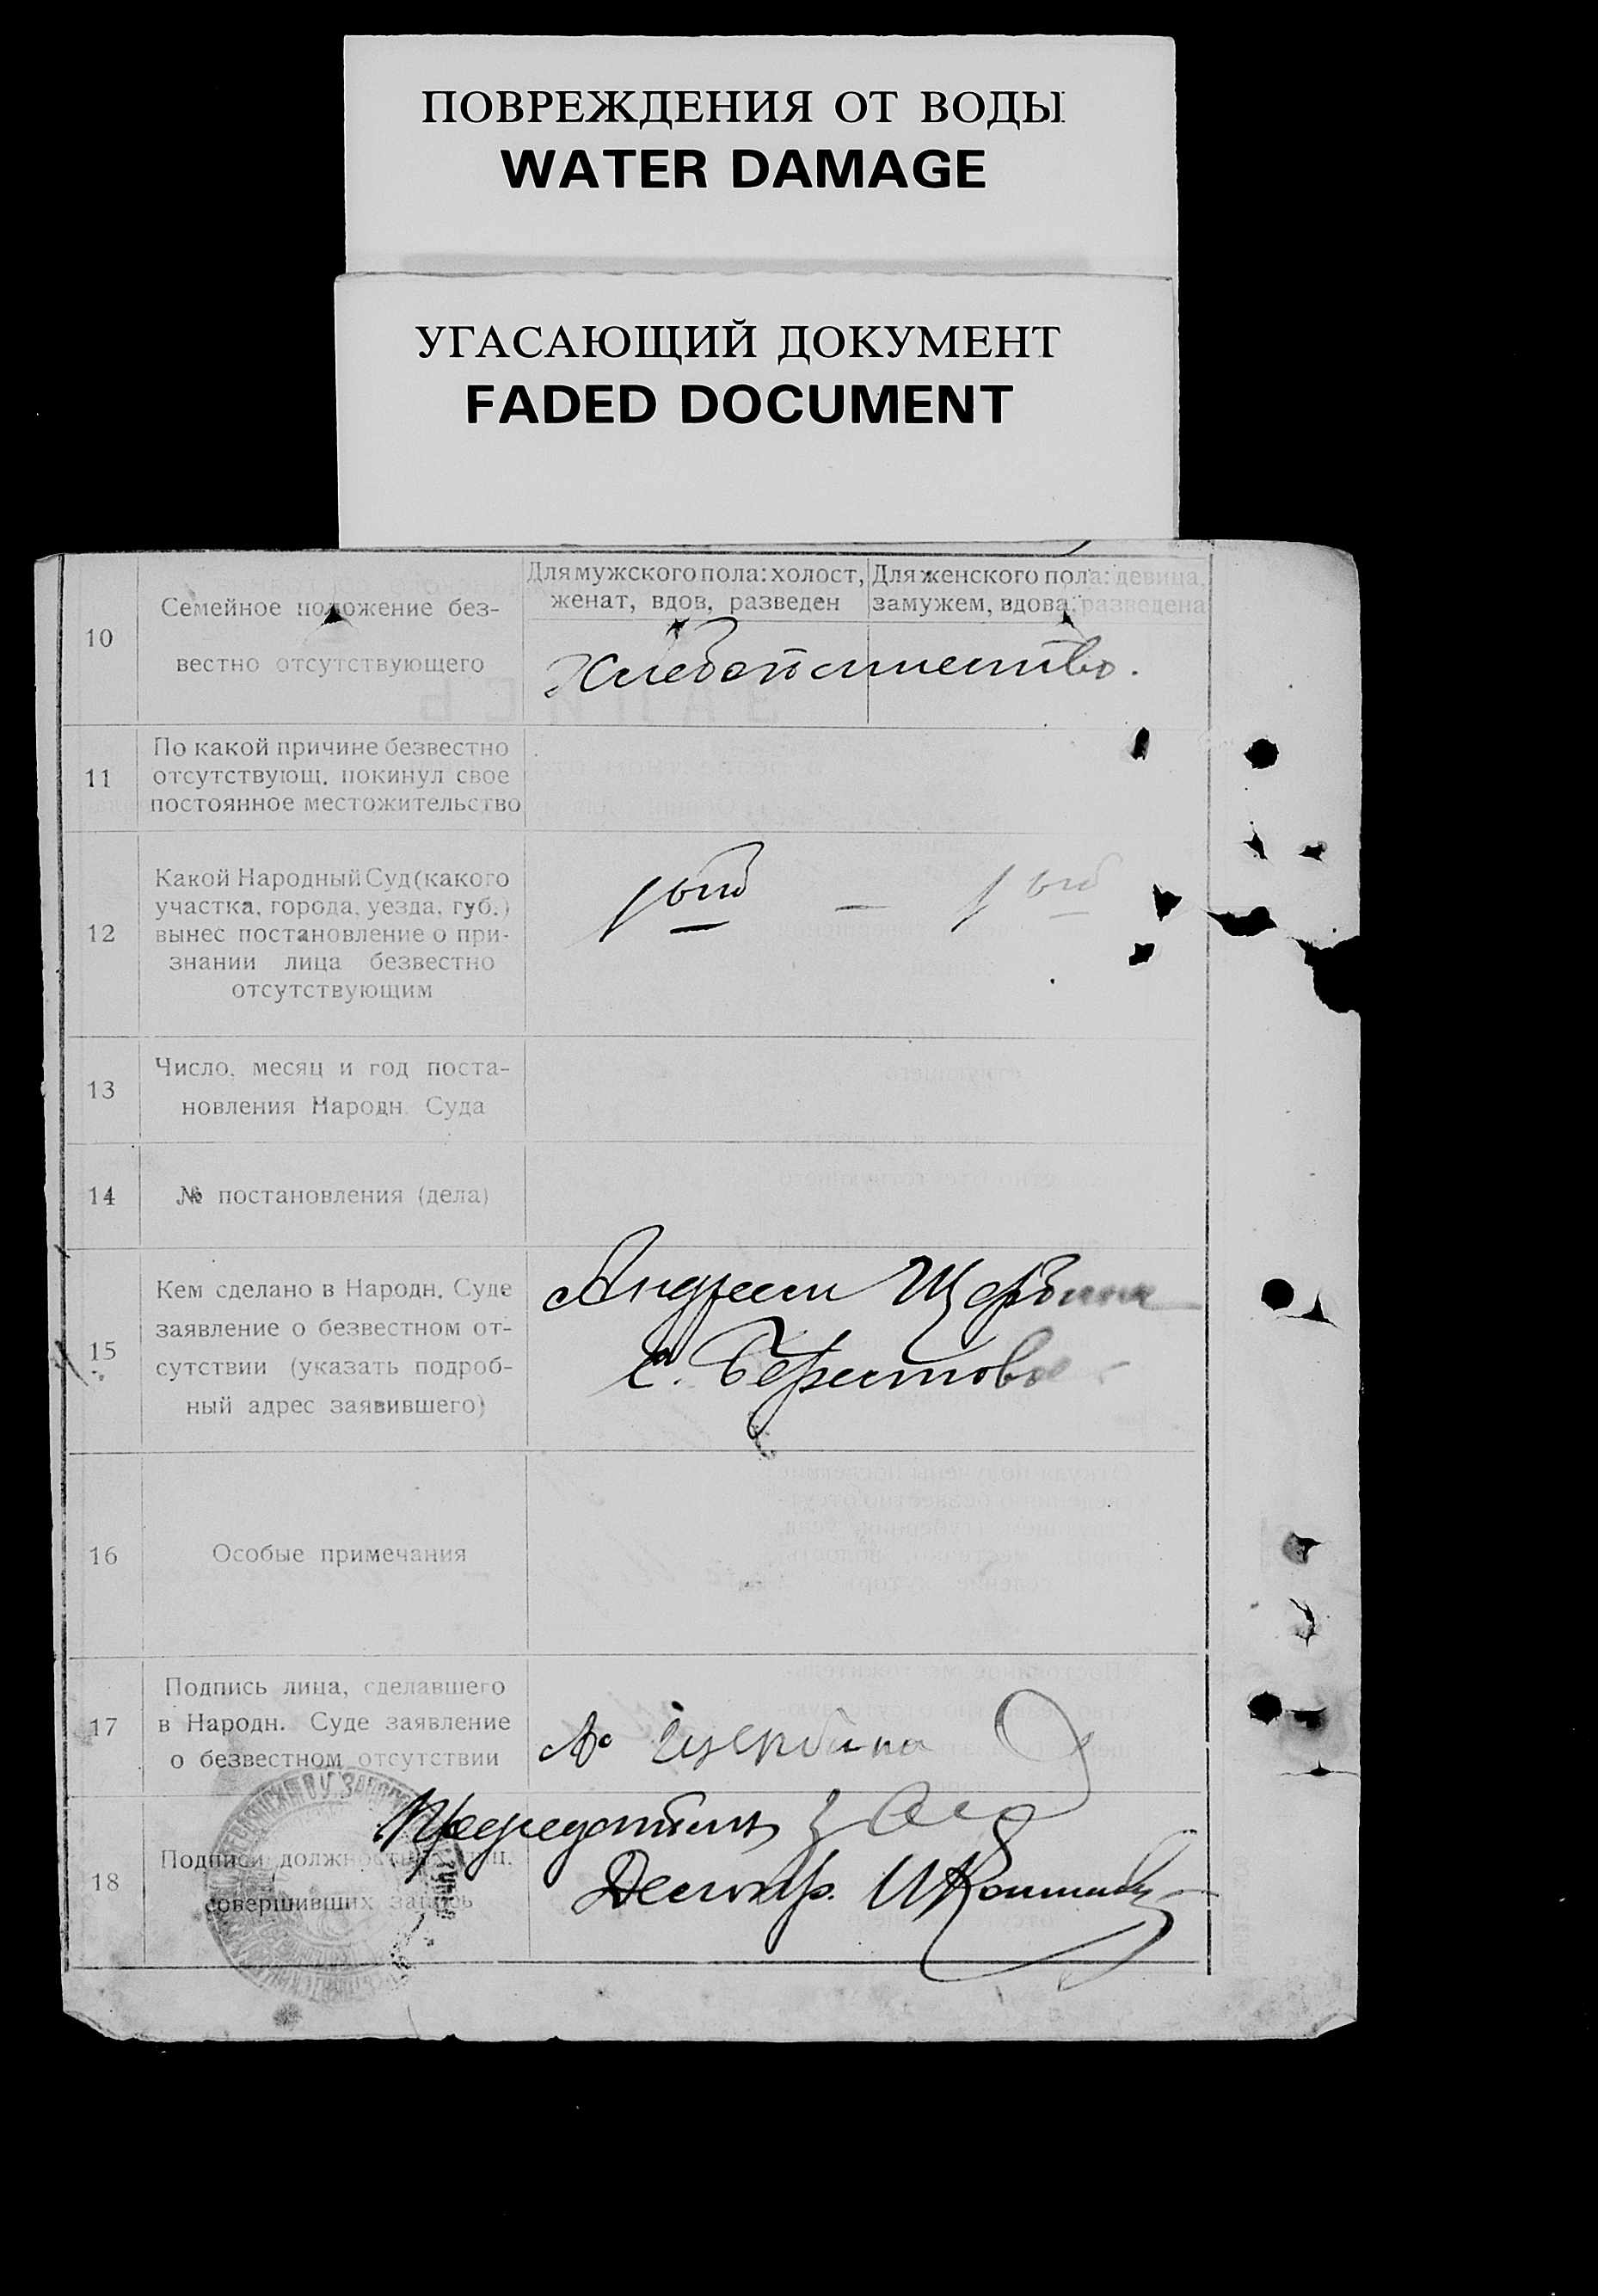 ПОВРЕЖДЕНИЯ ОТ ВОДЫ
WATER DAMAGE
УГАСАЮЩИЙ ДОКУМЕНТ
FADED DOCUMENT
10
Семейное положение без-
вестно отсутствующего
Для мужского пола: холост,
женат, вдов, разведен
Для женского пола: девица,
замужем, вдова, разведена
Хлебопашество.
11
По какой причине безвестно
отсутствующ. покинул свое
постоянное местожительство
12
Какой Народный Суд (какого
участка, города, уезда, губ.)
вынес постановление о при-
знании лица безвестно
отсутствующим
1 ый — 1 ый
13
Число, месяц и год поста-
новления Народн. Суда
14
№ постановления (дела)
15
Кем сделано в Народн. Суде
заявление о безвестном от-
сутствии (указать подроб-
ный адрес заявившего)
Андреем Щербина
с. Берестовое
16
Особые примечания
17
Подпись лица, сделавшего
в Народн. Суде заявление
о безвестном отсутствии
А Щербина
18
Подписи должностных лиц,
совершивших запись
Председатель